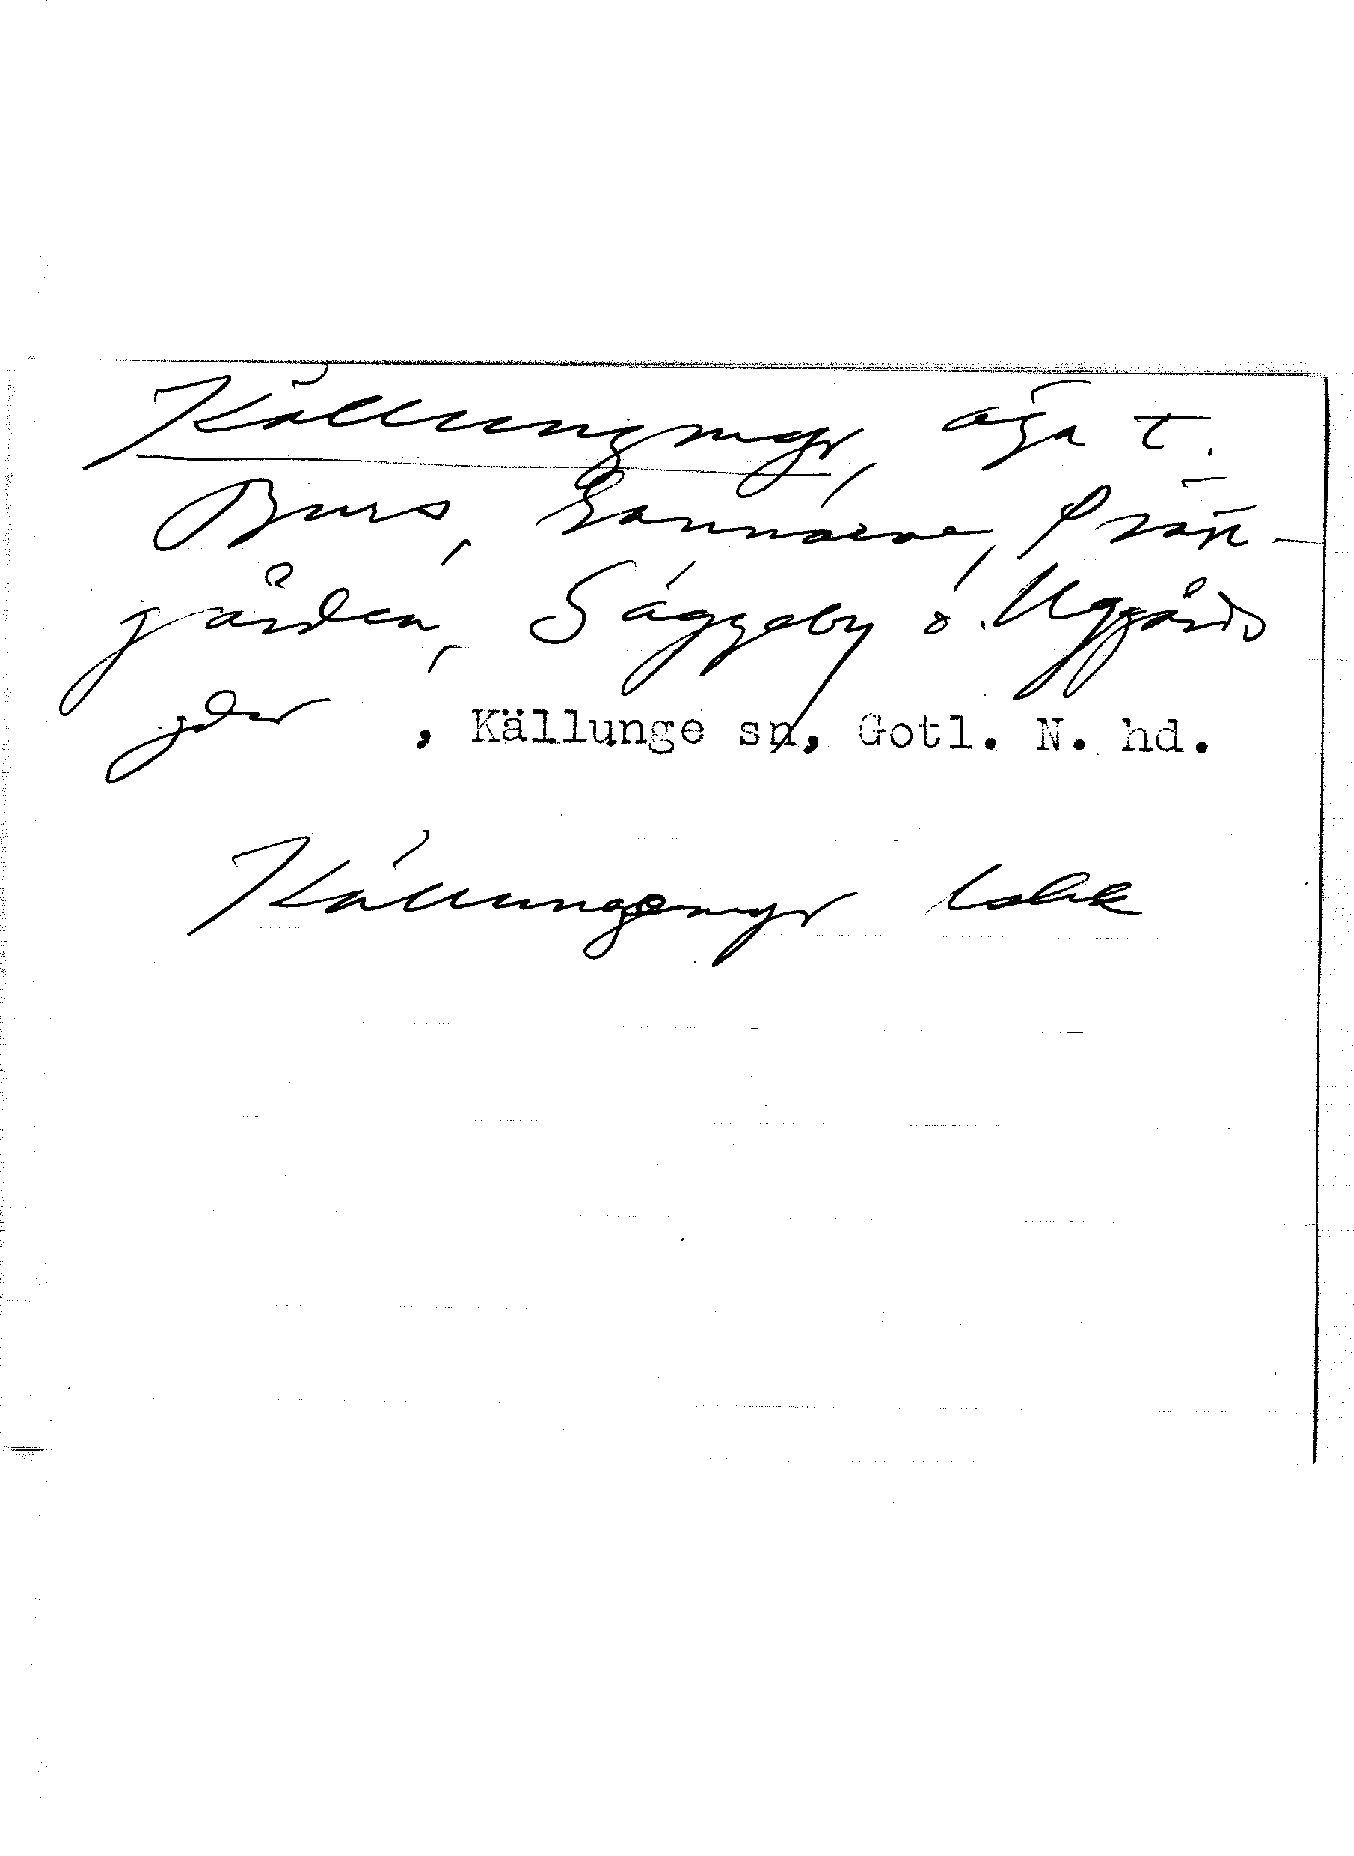 Källungmyr, äga t.
Burs, Hannarve, Präst-
gården, Säggeby o. Uggårds
gdr, Källunge sn, Gotl. N. hd.
Källungemyr